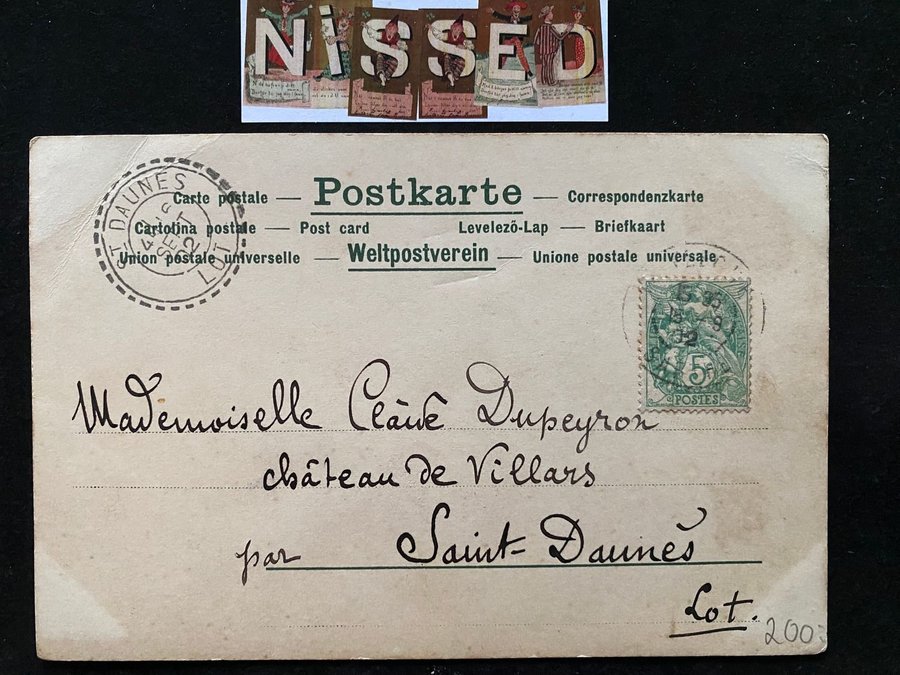 NiSSED
Carte postale — Postkarte — Correspondenzkarte
Cartolina postale — Post card Levelező-Lap — Briefkaart
Union postale universelle — Weltpostverein — Unione postale universale
ST DAUNÈS
16
SEPT
02
LOT
5 F
POSTES
Mademoiselle Dupeyron
château de Villars
par Saint-Daunès
Lot.